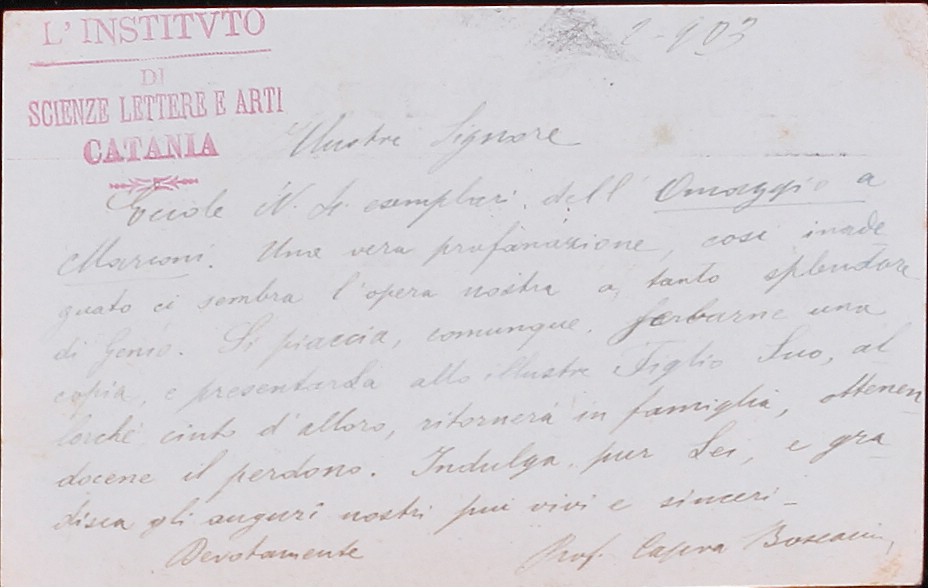 L'INSTITVTO
DI
SCIENZE LETTERE E ARTI
CATANIA
2-903
Illustre Signore
Eccole N. 4 esemplari dell'Omaggio a
Marconi. Una vera profanazione, così inade
guato ci sembra l'opera nostra a tanto splendore
di Genio. Si piaccia, comunque, serbarne una
copia, e presentarla allo illustre Figlio Suo, al
lorchè cinto d'alloro, ritornerà in famiglia, ottenen
docene il perdono. Indulga pur Lei, e gra
disca gli auguri nostri più vivi e sinceri -
Devotamente
Prof.